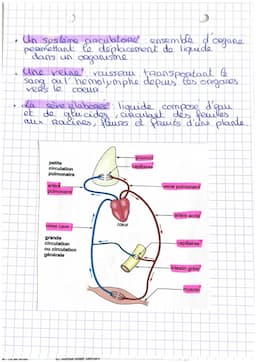 • Un système circulatoire: ensemble d'organe
permettant le déplacement de liquide
dans un organisme
• Une veine: vaisseau transportant le
sang ou l'hémolymphe depuis les organes
vers le coeur
• La sève élaborée: liquide composé d'eau
et de glucides, circulant des feuilles
aux racines, fleurs et fruits d'une plante.
poumon
capillaires
petite
circulation
pulmonaire
artère
pulmonaire
veine pulmonaire
coeur
artère aorte
veine cave
grande
circulation
ou circulation
générale
capillaires
intestin grêle
muscle